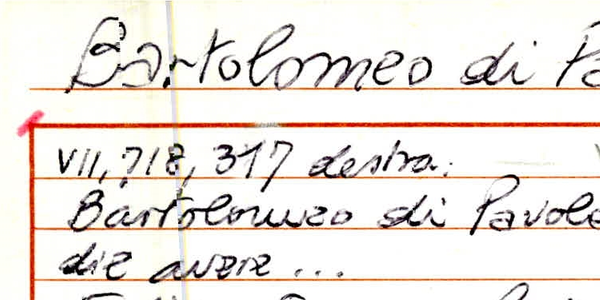 Bartolomeo di Pa
VII, 718, 317 destra:
Bartolomeo di Pavole
die avere ...